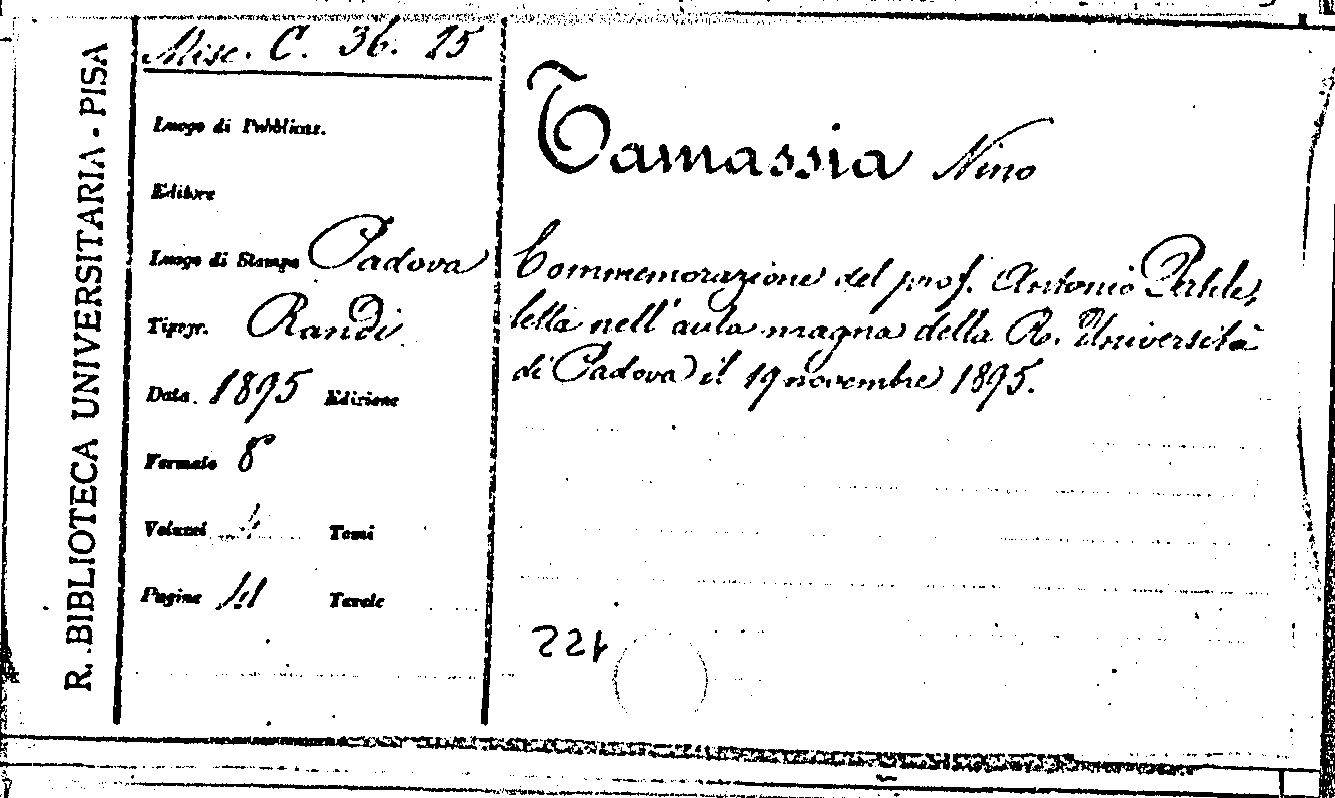 R. BIBLIOTECA UNIVERSITARIA - PISA
Misc. C. 36. 25
Luogo di Pubblicaz.
Editore
Luogo di Stampa Padova
Tipogr. Randi
Data 1895 Edizione
Formato 8
Volumi Tomi
Pagine Tavole
Tamassia Nino
Commemorazione del prof. Antonio Pertile,
letta nell' aula magna della R. Università
di Padova il 19 novembre 1895.